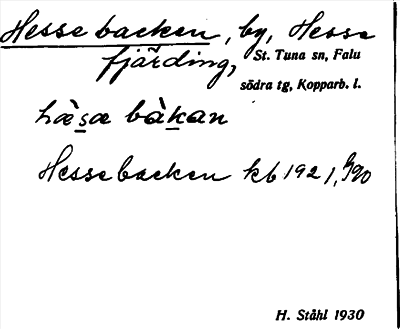 Hessebacken, by, Hesse
fjärding, St. Tuna sn, Falu
södra tg, Kopparb. l.
hæ̀sæ bàkan
Hessebacken kb 1921,
H. Ståhl 1930